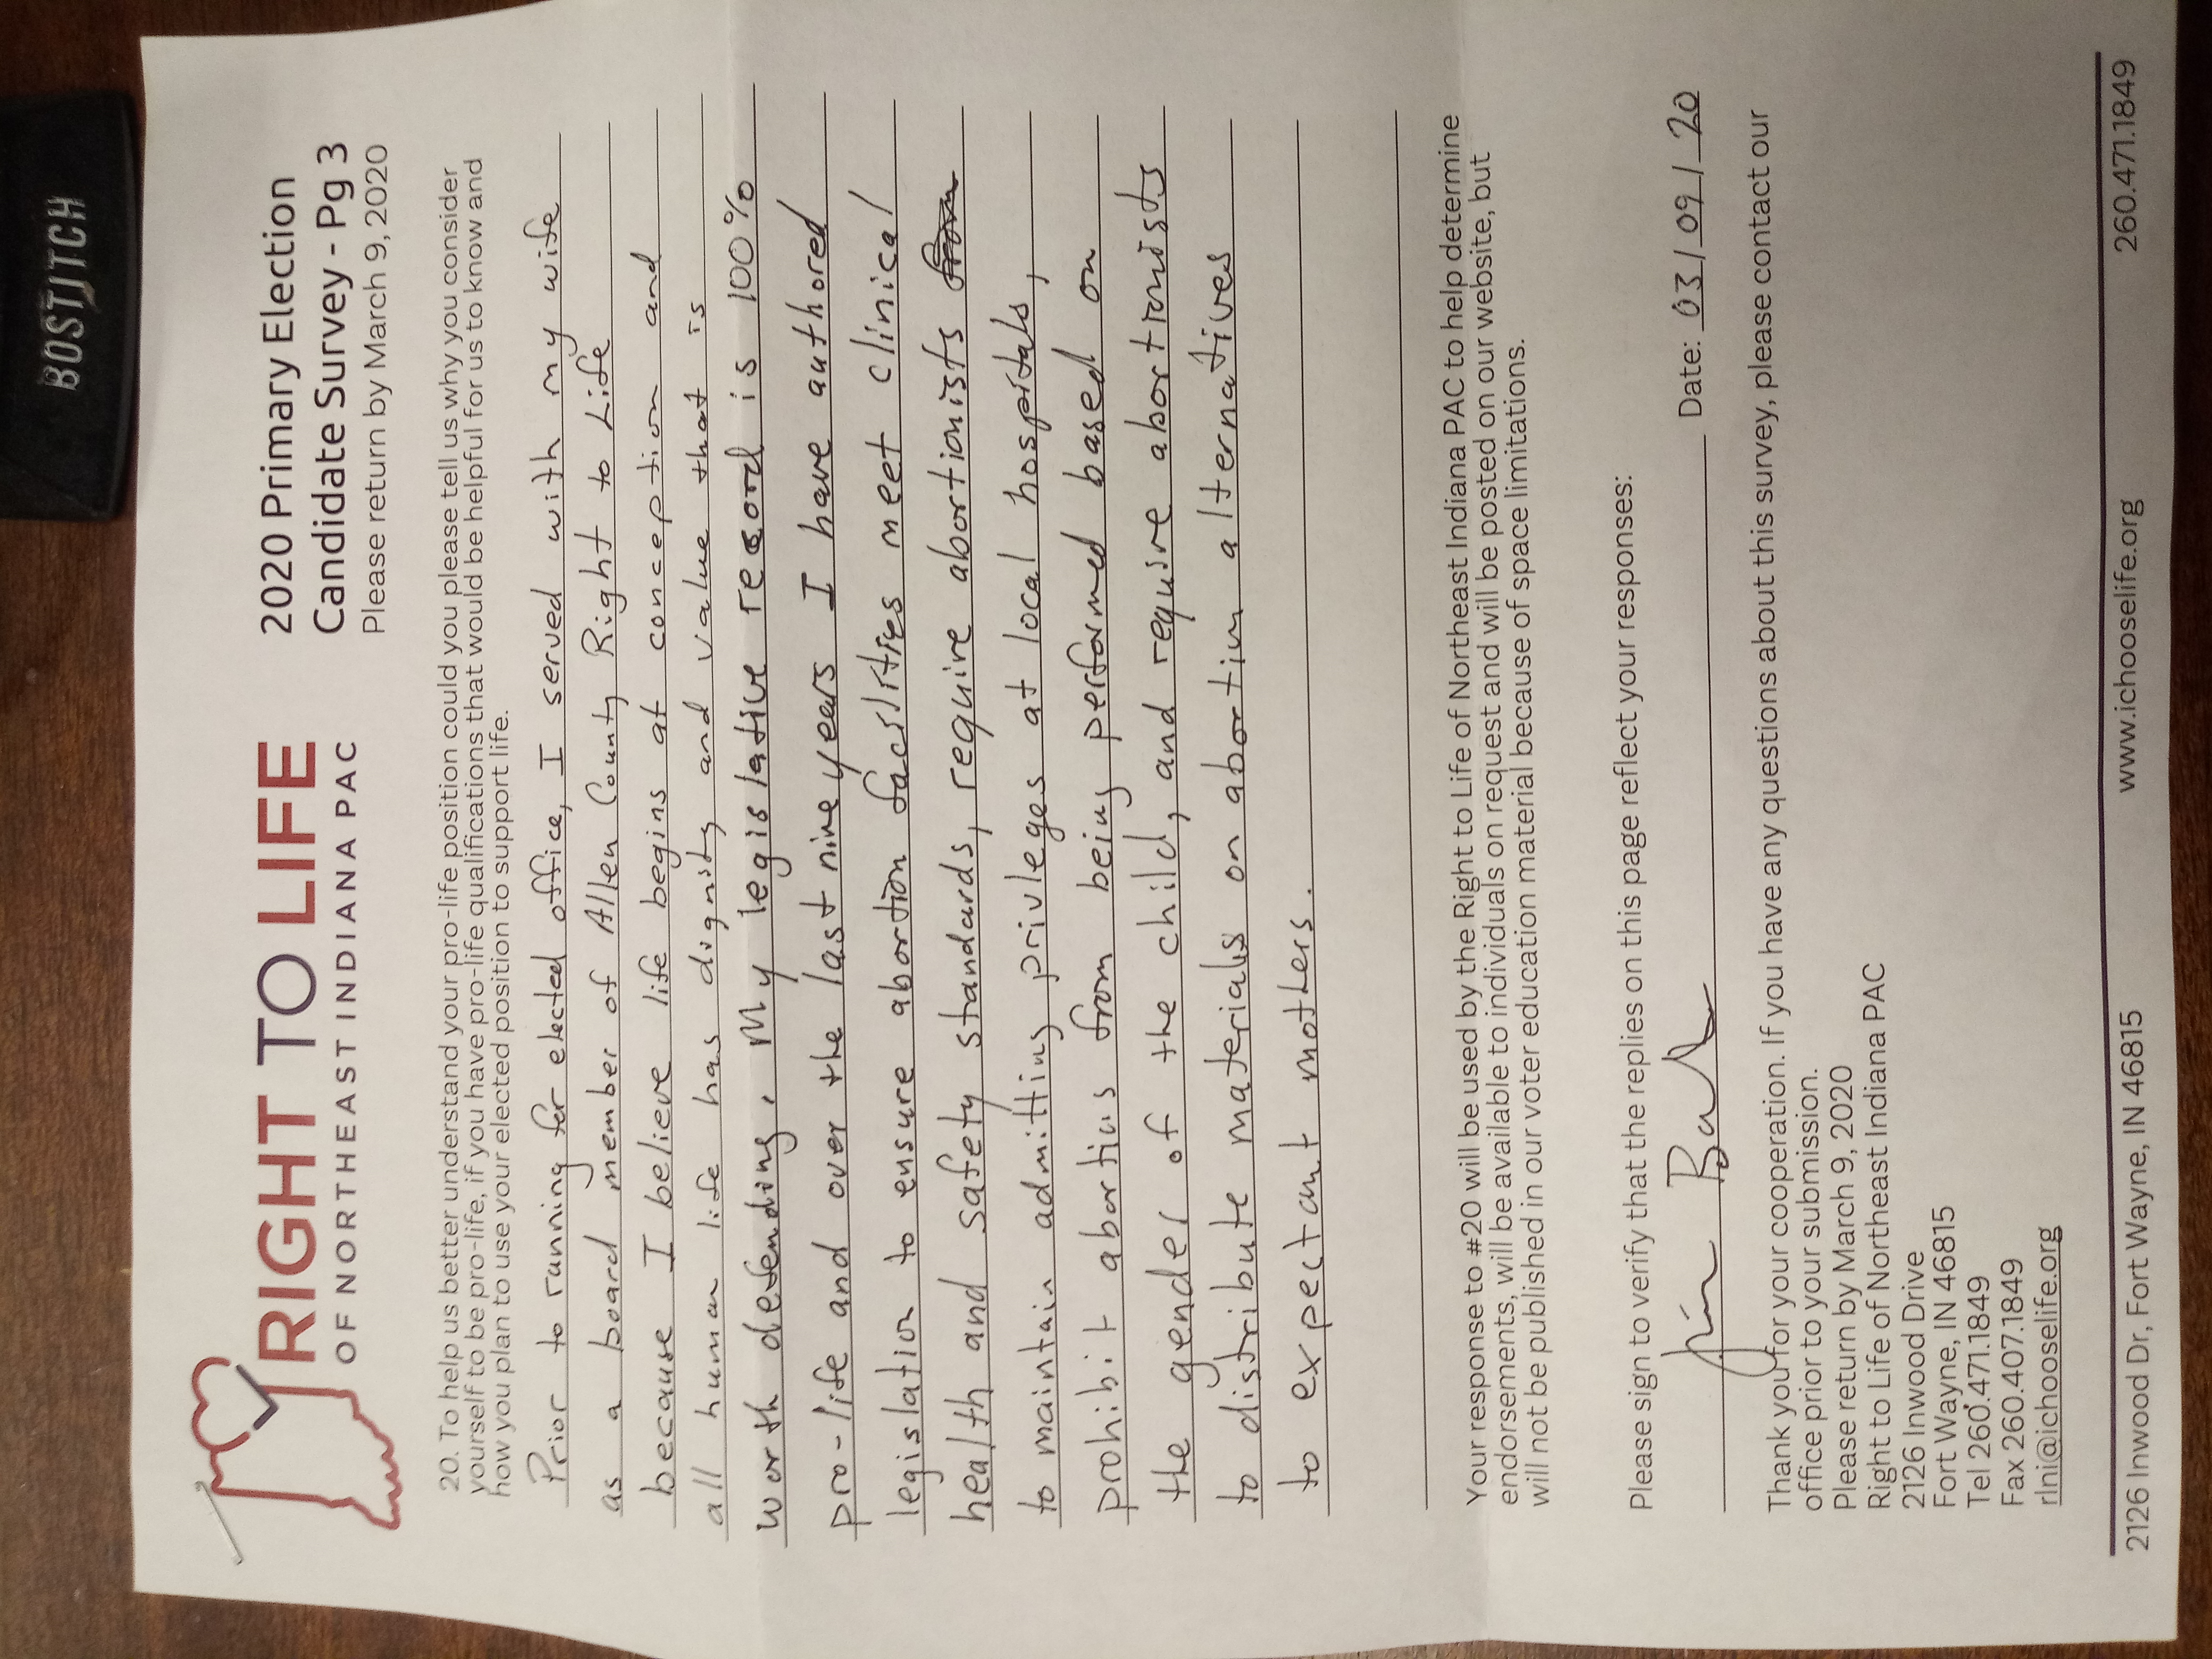 BOSTITCH
RIGHT TO LIFE
OF NORTHEAST INDIANA PAC
2020 Primary Election
Candidate Survey - Pg 3
Please return by March 9, 2020
20. To help us better understand your pro-life position could you please tell us why you consider
yourself to be pro-life, if you have pro-life qualifications that would be helpful for us to know and
how you plan to use your elected position to support life.
Prior to running for elected office, I served with my wife
as a board member of Allen County Right to Life
because I believe life begins at conception and
all human life has dignity and value that is
worth defending. My legislative record is 100%
pro-life and over the last nine years I have authored
legislation to ensure abortion facilities meet clinical
health and safety standards, require abortionists from
to maintain admitting privileges at local hospitals,
prohibit abortions from being performed based on
the gender of the child, and require abortionists
to distribute materials on abortion alternatives
to expectant mothers.
Your response to #20 will be used by the Right to Life of Northeast Indiana PAC to help determine
endorsements, will be available to individuals on request and will be posted on our website, but
will not be published in our voter education material because of space limitations.
Please sign to verify that the replies on this page reflect your responses:
Date: 03/09/20
Thank you for your cooperation. If you have any questions about this survey, please contact our
office prior to your submission.
Please return by March 9, 2020
Right to Life of Northeast Indiana PAC
2126 Inwood Drive
Fort Wayne, IN 46815
Tel 260.471.1849
Fax 260.407.1849
rlni@ichooselife.org
2126 Inwood Dr, Fort Wayne, IN 46815 www.ichooselife.org 260.471.1849